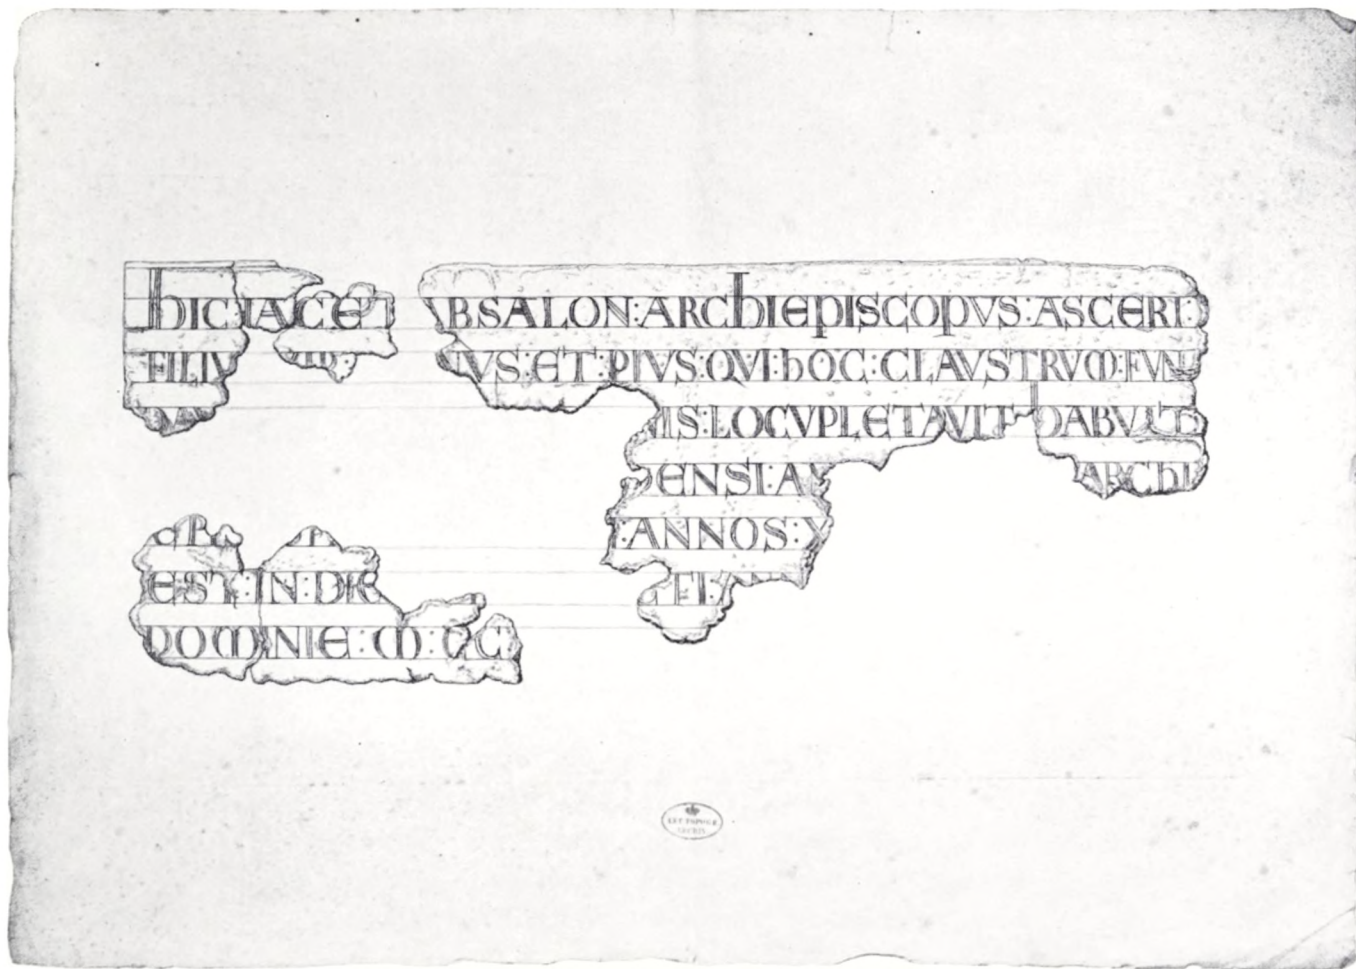 hIC:IACET BSALON:ARChIEPISCOPVS:ASCERI:
FILIV VS:ET:PIVS:QVI:hOC:CLAVSTRVM:FVN
IS:LOCVPLETAVIT hABVIT
ENSI:A ARChI
:ANNOS:X
EST:IN:DIE
DOMINIE:M:CC